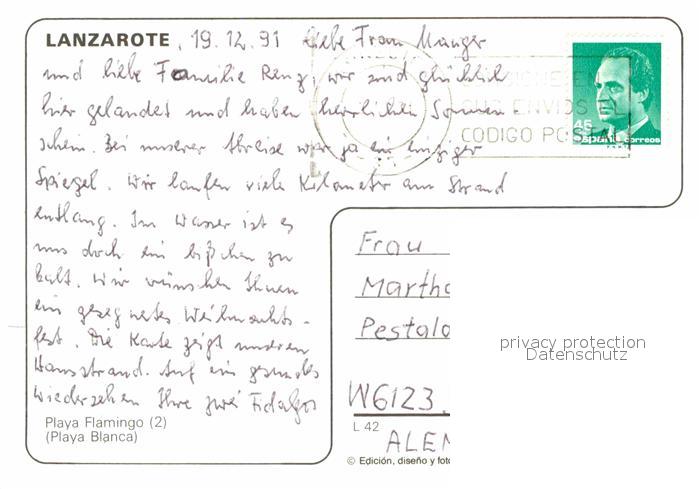 LANZAROTE, 19.12.91 Liebe Frau Manger
und liebe Familie Renz, wir sind glücklich
hier gelandet und haben herrlichen Sonnen
schein. Bei unserer Abreise war ja ein einziger
Spiegel. Wir laufen viele Kilometer am Strand
entlang. Im Wasser ist es
uns doch ein bißchen zu
kalt. Wir wünschen Ihnen
ein gesegnetes Weihnachts-
fest. Die Karte zeigt unseren
Hausstrand. Auf ein gesundes
Wiedersehen Ihre zwei Fidalgos
Playa Flamingo (2)
(Playa Blanca)
ENVIOS
CODIGO POSTAL
45
España correos
Frau
Martha
Pestalo
privacy protection
Datenschutz
W6123.
L 42
ALEM
© Edición, diseño y foto